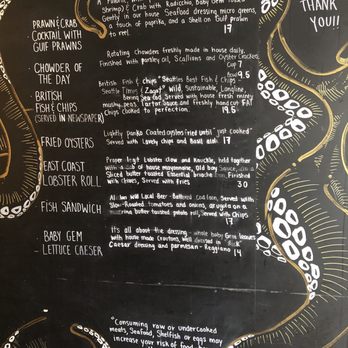 THANK
YOU!!
PRAWN & CRAB
COCKTAIL WITH
GULF PRAWNS
Shrimp) & Crab with Radicchio, Baby Gem
Gently in our house Seafood Dressing more greens,
a touch of paprika, and a Shell on Gulf prawn
to rest. 17
· CHOWDER OF
THE DAY
Rotating Chowders freshly made in house daily.
Finished with parsley oil, Scallions and Oyster Crackers
Cup 7
9.5
· BRITISH
FISH & CHIPS
(SERVED IN NEWSPAPER)
British Fish & Chips "Seattles Best Fish & Chips
Wild, Sustainable, Longline,
Bering Sea Served with house fries,
mushy peas, Tartar Sauce and freshly hand cut FAT
Chips Cooked to perfection. 19.5
FRIED OYSTERS
Lightly panko Coated oysters fried until "just cooked"
Served with Lovely chips and Basil 17
EAST COAST
LOBSTER ROLL
Proper legit Lobster claw and Knuckle, held together
with a of house mayonnaise, Old Bay, in a
Sliced butter toasted Essential Finished
with chives, Served with fries 30
FISH SANDWICH
Local Beer-Battered Served with
Slow-Roasted tomatoes and onions, arugula on a
butter toasted potato roll, Served with Chips
17
· BABY GEM
LETTUCE CAESER
Its all about the dressing whole baby Gem leaves
with house made Croutons, Well in
Caesar dressing and parmesan-Reggiano 14
"Consuming raw or undercooked
meats, Seafood, Shellfish or eggs may
increase your risk of food